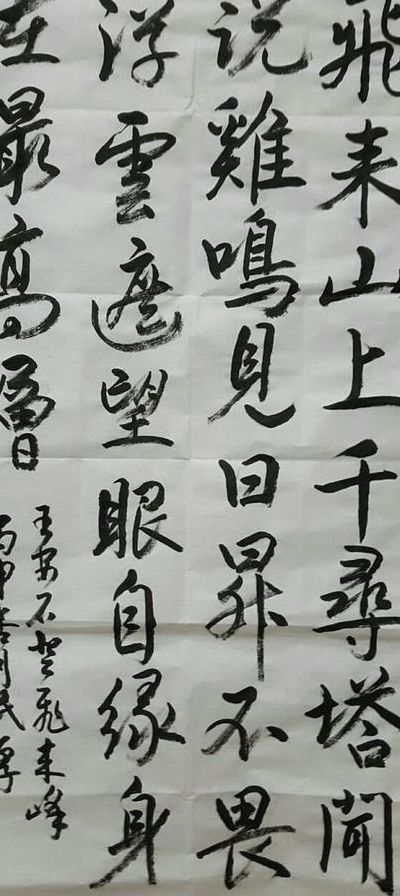 飛来山上千尋塔聞
说雞鳴見日昇不畏
浮雲遮望眼自緣身
在最高層
王安石登飛来峰
丙申利民